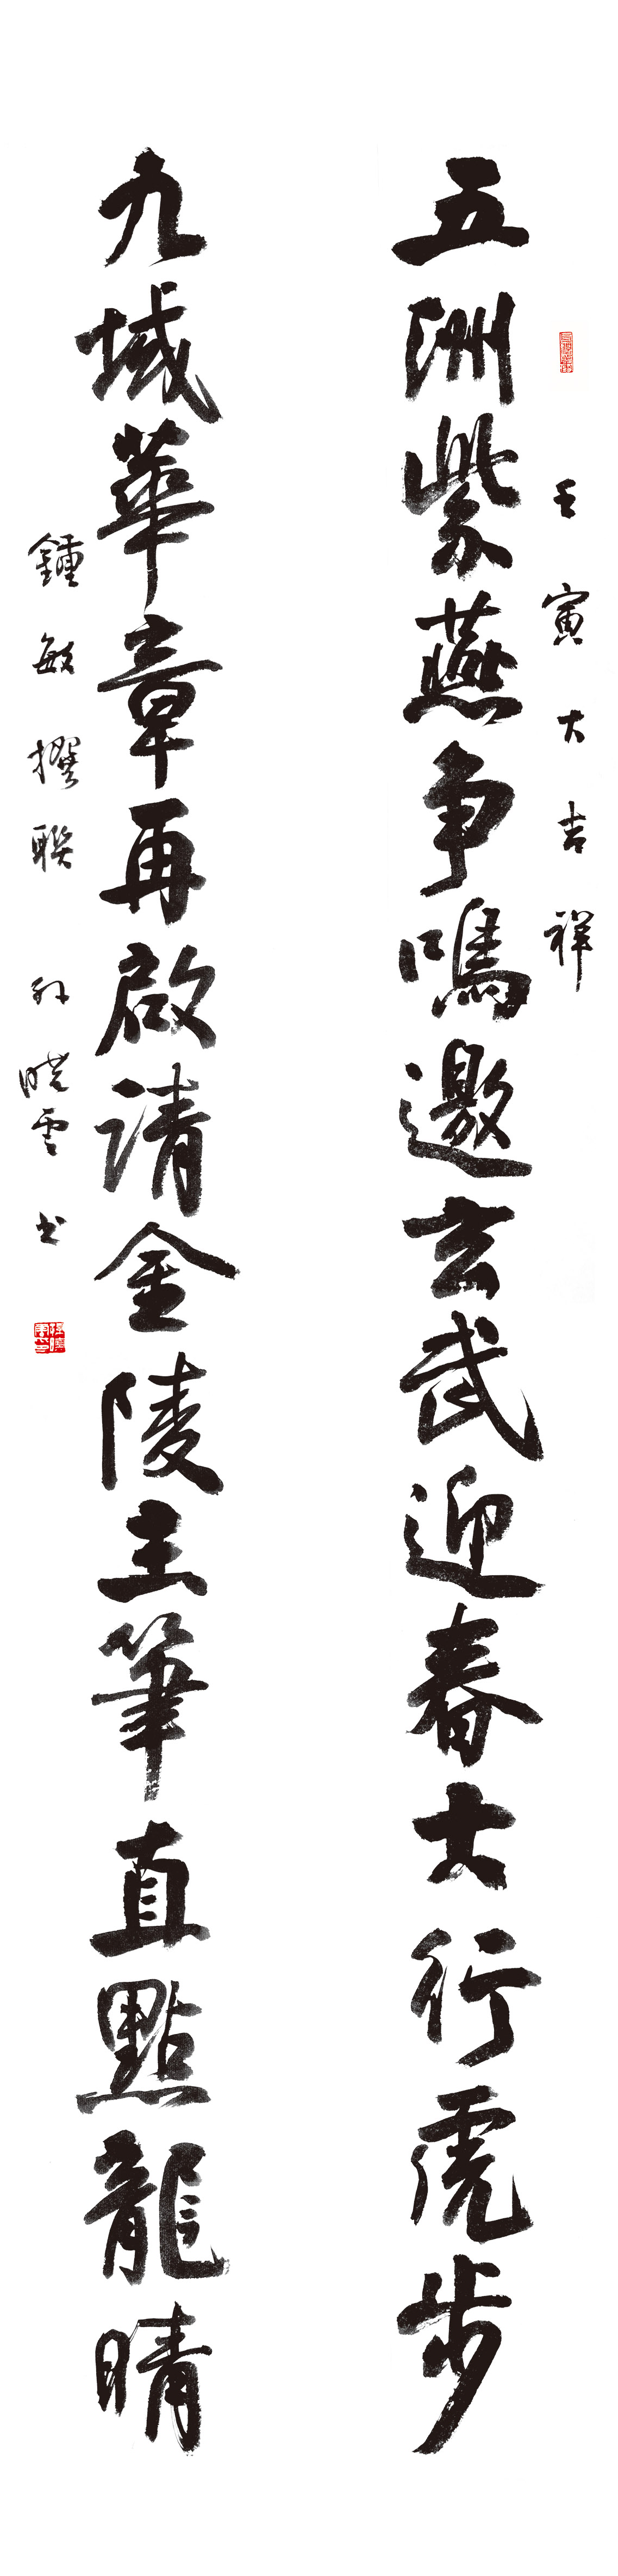 壬寅大吉祥
五洲紫燕争鳴邀玄武迎春大行虎步
九域華章再啟请金陵主筆直點龍睛
鍾敏撰聯 孙晓雲书